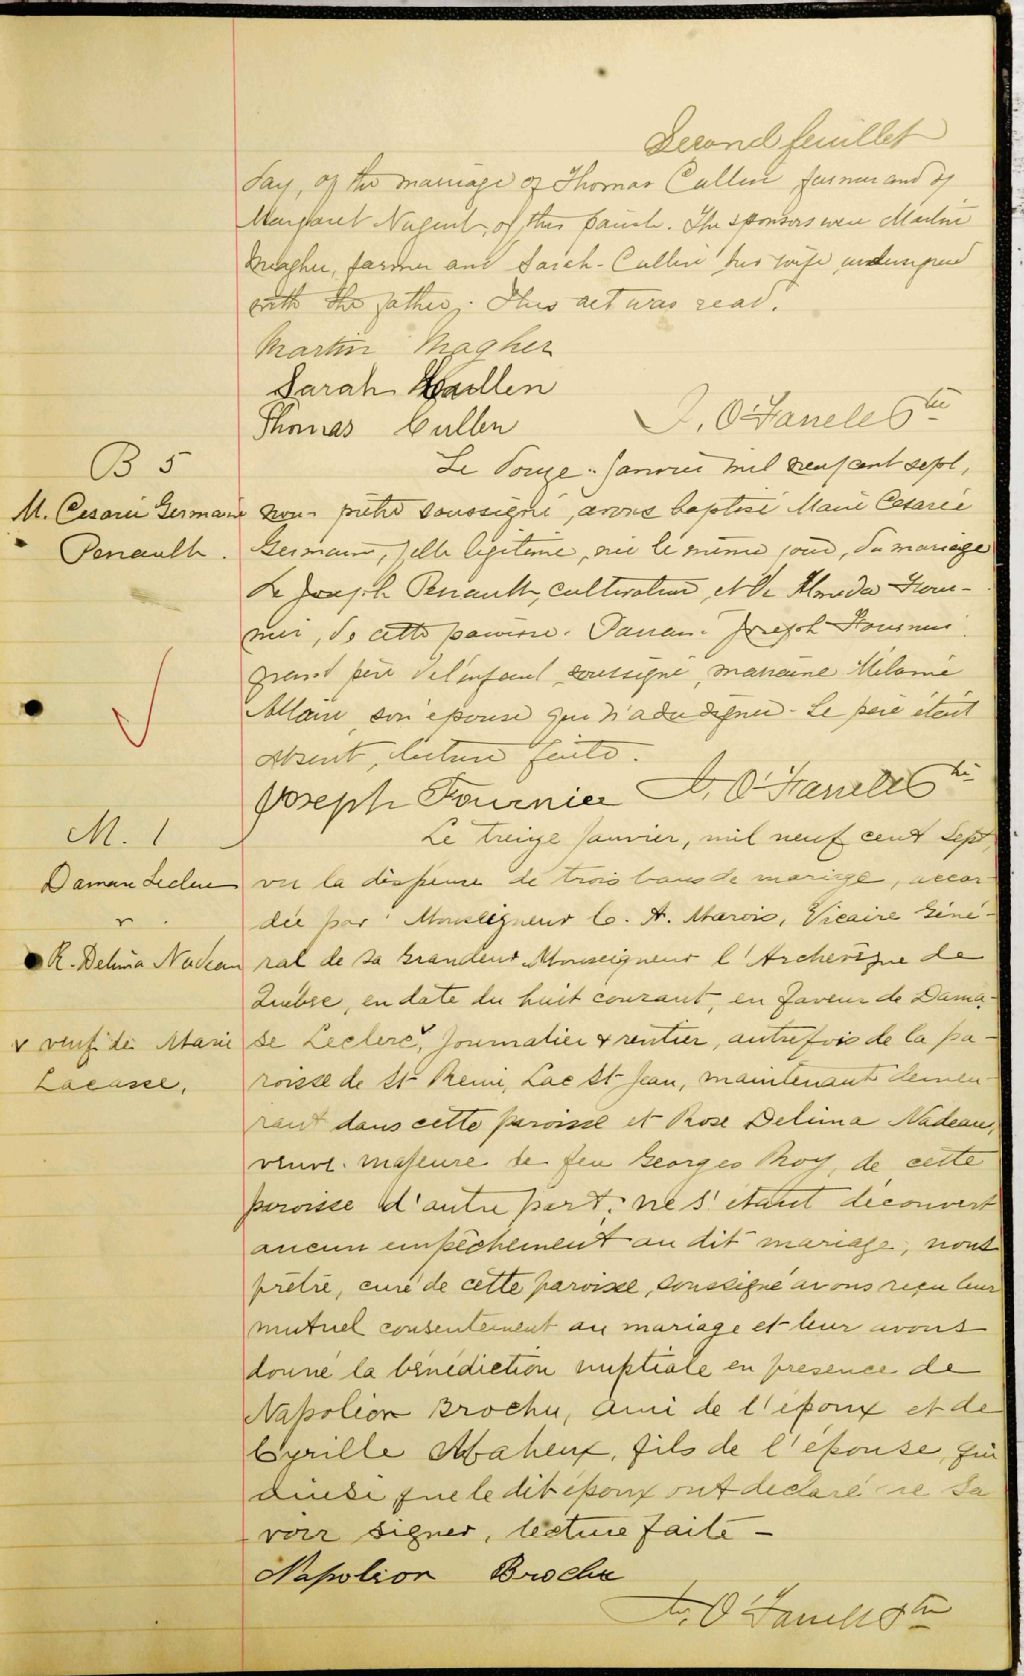 Second feuillet
day, of the marriage of Thomas Cullen farmer and of
Margaret Nugent, of this parish. The sponsors were Martin
Meagher, farmer and Sarah Cullen his wife undersigned
with the father. This act was read.
Martin Magher
Sarah Cullen
Thomas Cullen J. O'Farrell Ptre
B 5
M. Cesarie Germaine
Perrault.
Le douze Janvier mil neuf cent sept,
nous prêtre soussigné, avons baptisé Marie Cesarée
Germaine, fille légitime, née le même jour, du mariage
de Joseph Perrault, cultivateur, et de Almeda Four-
nier, de cette paroisse. Parrain Joseph Fournier
grand père de l'enfant soussigné, marraine Mélanie
Allaire, son épouse qui n'a du signer. Le père était
absent, lecture faite.
Joseph Fournier J. O'Farrell Ptre
M. 1
Damase Leclerc
&
R. Delima Nadeau
v veuf de Marie
Lacasse,
Le treize Janvier, mil neuf cent sept,
vu la dispense de trois bans de mariage, accor-
dée par Monseigneur C. A. Marois, Vicaire Géné-
ral de Sa Grandeur Monseigneur l'Archevêque de
Québec, en date du huit courant, en faveur de Dama-
se Leclerc v, Journalier & rentier, autrefois de la pa-
roisse de St Remi, Lac St Jean, maintenant demeu-
rant dans cette paroisse et Rose Delima Nadeau,
veuve majeure de feu Georges Roy, de cette
paroisse d'autre part; ne s'étant découvert
aucun empêchement au dit mariage, nous
prêtre, curé de cette paroisse, soussigné avons reçu leur
mutuel consentement au mariage et leur avons
donné la bénédiction nuptiale en presence de
Napoléon Brochu, ami de l'époux et de
Cyrille Maheux, fils de l'épouse, qui
ainsi que le dit époux ont déclaré ne sa
voir signer, lecture faite -
Napoleon Brochu
J. O'Farrell Ptre